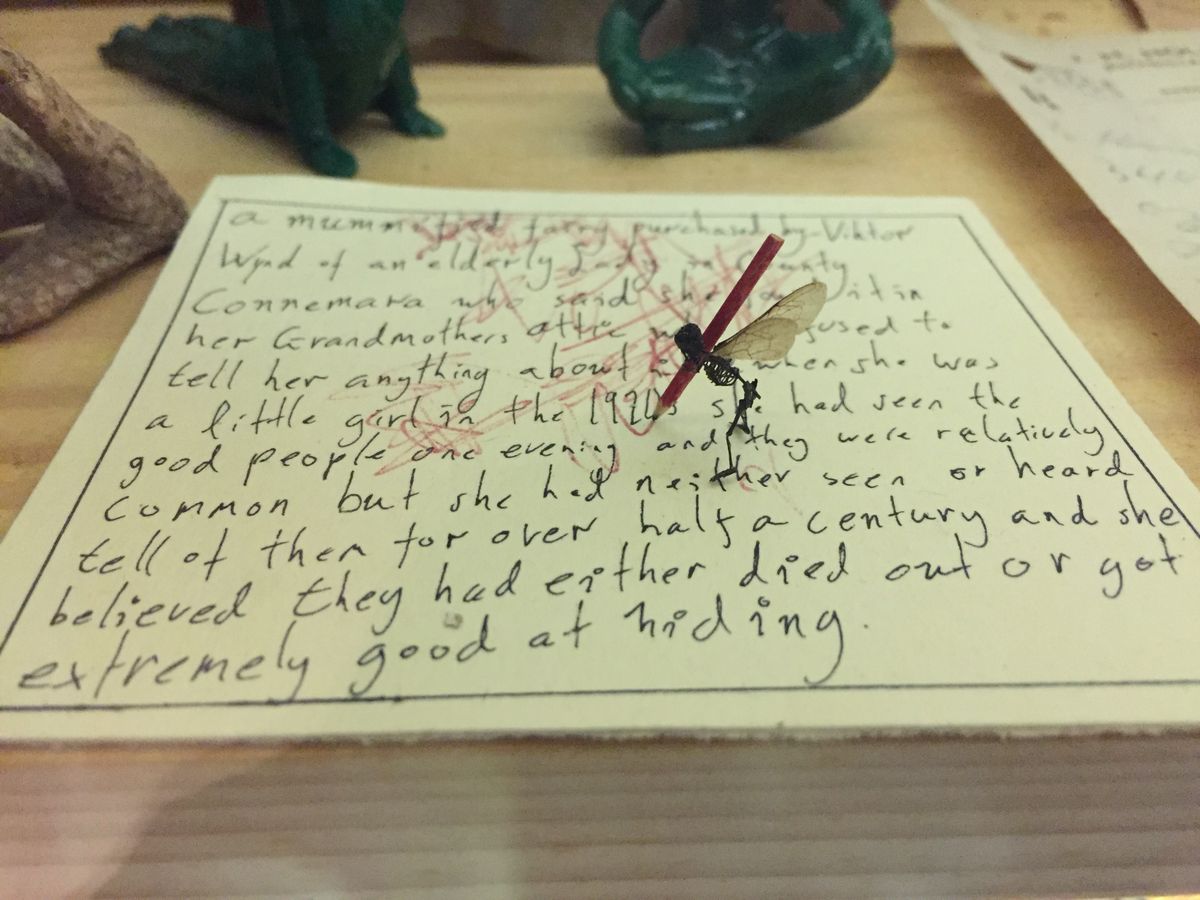 a mummified fairy purchased by Viktor
Wynd of an elderly Lady in County
Connemara who said she it in
her Grandmothers attic used to
tell her anything about when she was
a little girl in the 1920s she had seen the
good people one evening and they were relatively
common but she had neither seen or heard
tell of them for over half a century and she
believed they had either died out or got
extremely good at hiding.